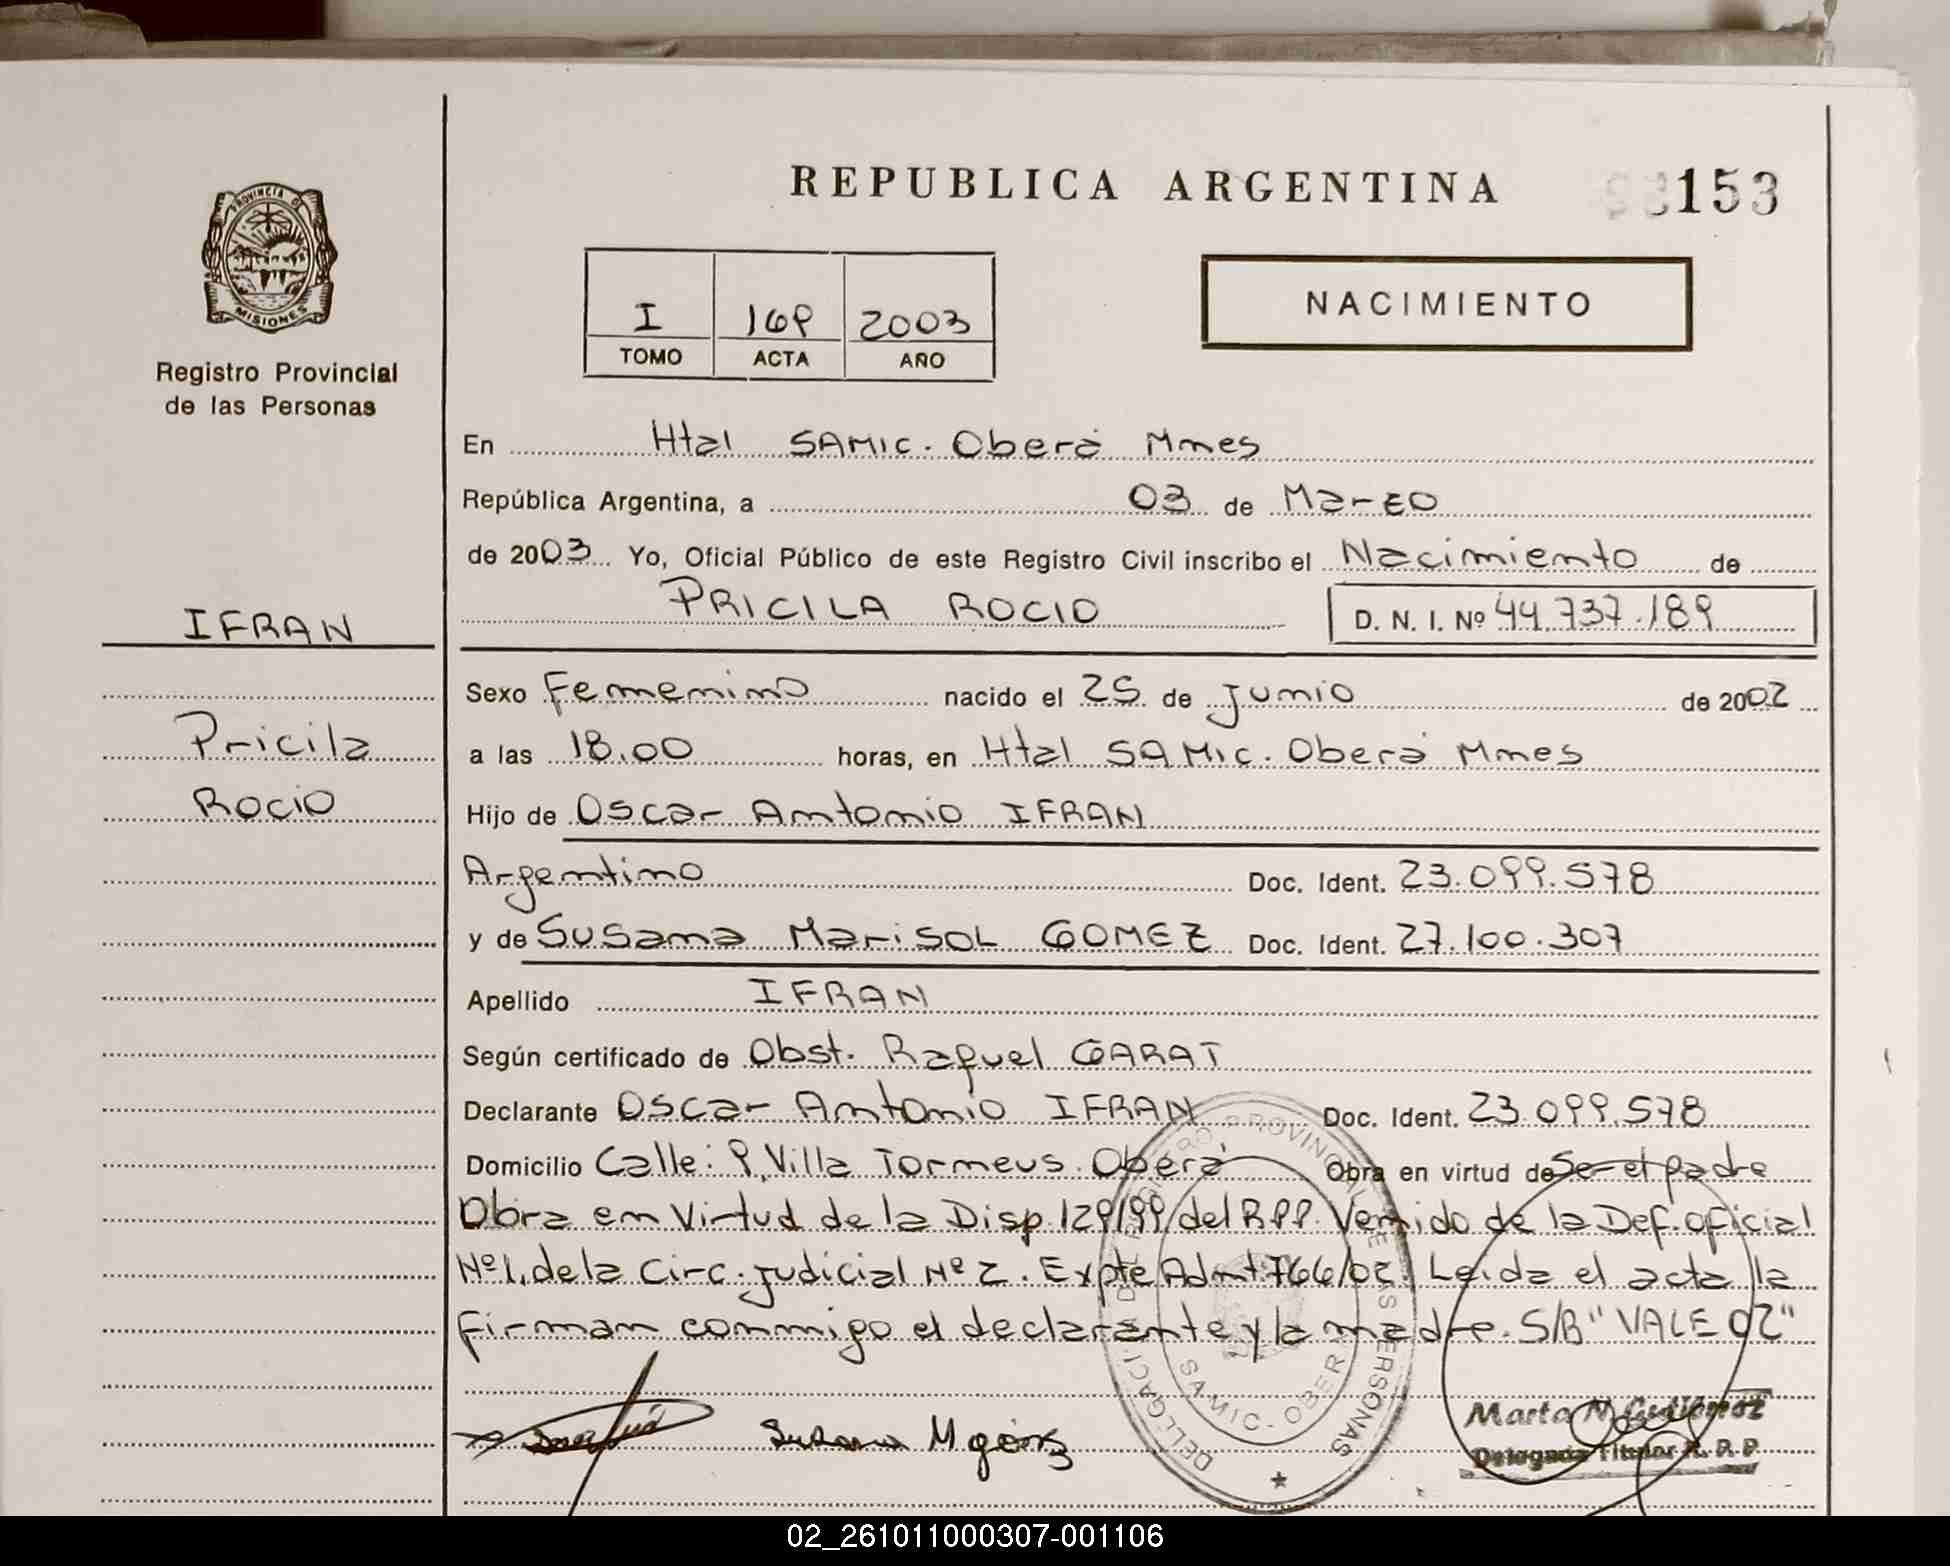 REPUBLICA ARGENTINA
153
PROVINCIA DE
MISIONES
Registro Provincial
de las Personas
I 169 2003
TOMO ACTA AÑO
NACIMIENTO
En Htal SAMIC. Oberá Mnes
República Argentina, a 03 de Marzo
de 2003 Yo, Oficial Público de este Registro Civil inscribo el Nacimiento de
PRICILA ROCIO D. N. I. Nº 44.737.189
IFRAN
Pricila
Rocio
Sexo Femenino nacido el 25 de Junio de 2002
a las 18.00 horas, en Htal SAMIC. Oberá Mnes
Hijo de Oscar Antonio IFRAN
Argentino Doc. Ident. 23.099.578
y de Susana MariSOL GOMEZ Doc. Ident. 27.100.307
Apellido IFRAN
Según certificado de Obst. Raquel GARAT
Declarante Oscar Antonio IFRAN Doc. Ident. 23.099.578
Domicilio Calle: 9, Villa Torneus. Oberá Obra en virtud de Ser el padre
Obra en Virtud de la Disp. 129/99 del R.P.P. Venido de la Def. oficial
Nº1, de la Circ. Judicial Nº 2. Expte Admt. 766/02. Leida el acta la
firman conmigo el declarante y la madre. S/B "VALE 02"
Susana M gómez
DELEGACI REGISTRO PROVINCIAL DE LAS PERSONAS
SAMIC - OBERA
Marta N. Gutierrez
Delegada Titular R. P. P.
02_261011000307-001106